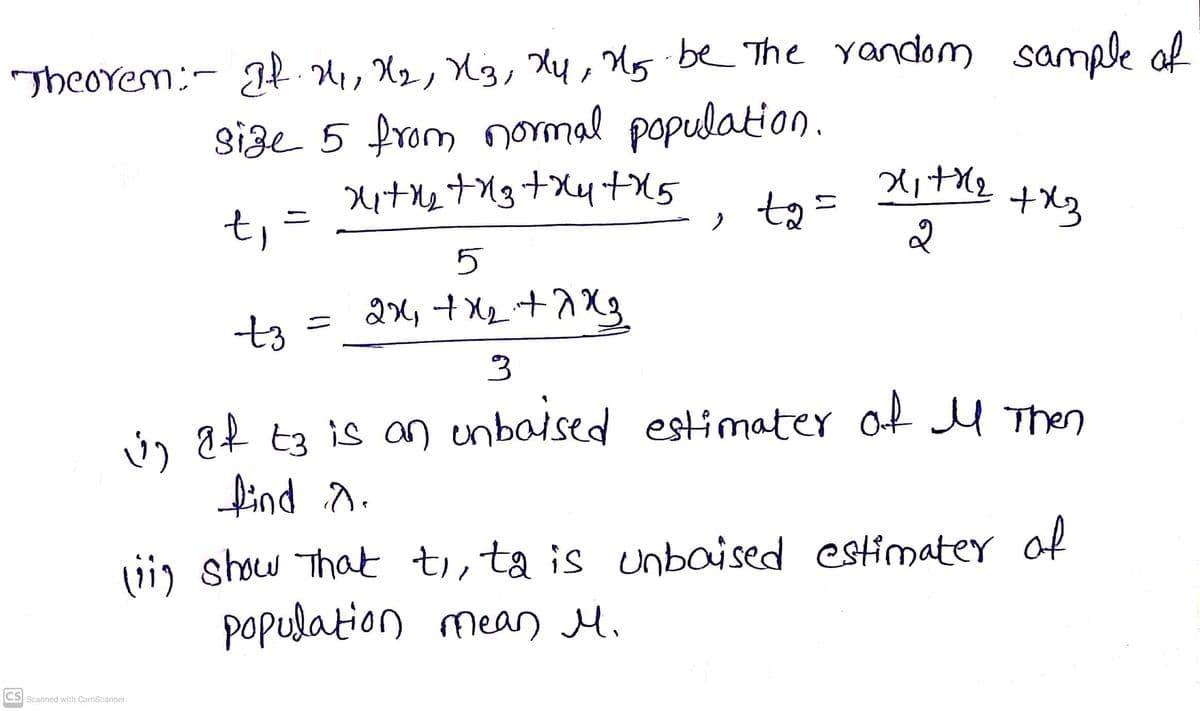 Theorem:- If x₁, x₂, x₃, x₄, x₅ be The random sample of
size 5 from normal population.
t₁ = (x₁+x₂+x₃+x₄+x₅)/5 , t₂ = (x₁+x₂)/2 + x₃
t₃ = (2x₁ + x₂ + λx₃)/3
(i) If t₃ is an unbaised estimater of μ Then
find λ.
(ii) show That t₁, t₂ is unbaised estimater of
population mean μ.
CS Scanned with CamScanner